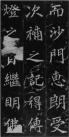 而沙門惠朗受
次補之記得傳
燈之旨繼明佛